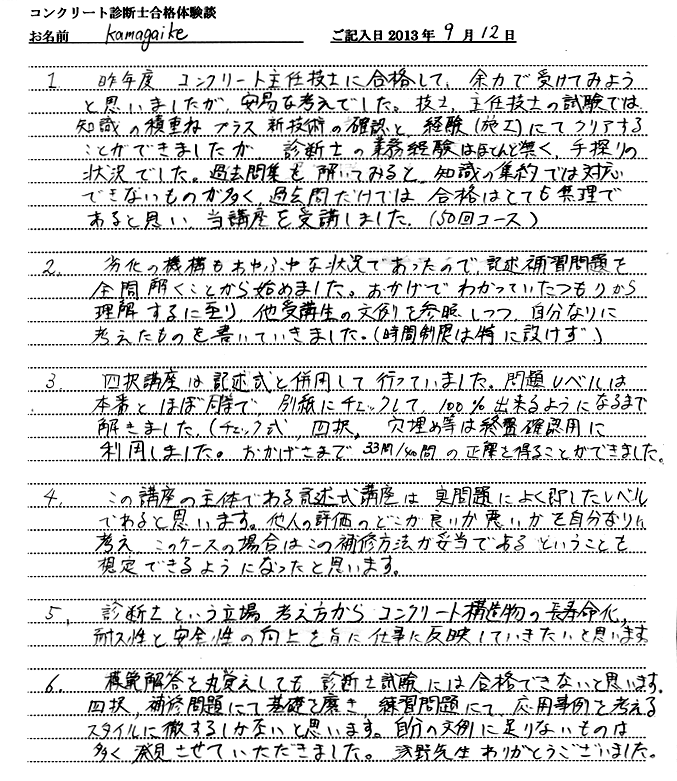 コンクリート診断士合格体験談
お名前 kamagaike ご記入日2013年9月12日
1. 昨年度 コンクリート主任技士に合格して、余力で受けてみよう
と思いましたが、安易な考えでした。技士、主任技士の試験では
知識の積重ねプラス新技術の確認と、経験(施工)にてクリアする
ことができましたが 診断士の業務経験はほとんど無く、手探りの
状況でした。過去問集を解いてみると、知識の集約では対応
できないものが多く、過去問だけでは合格はとても無理で
あると思い、当講座を受講しました。(50回コース)
2. 劣化の機構もあやふやな状況であったので、記述補習問題を
全問解くことから始めました。おかげでわかっていたつもりから
理解するに至り、他受講生の文例を参照しつつ、自分なりに
考えたものを書いていきました。(時間制限は特に設けず)
3. 四択講座は記述式と併用して行っていました。問題レベルは
本番とほぼ同等で、別紙にチェックして、100%出来るようになるまで
解きました。(チェック式、四択、穴埋め等は終盤確認用に
利用しました。おかげさまで33問/40問の正解を得ることができました。
4. この講座の主体である記述式講座は実問題によく即したレベル
であると思います。他人の評価のどこが良いか悪いかを自分なりに
考え このケースの場合はこの補修方法が妥当であるということを
想定できるようになったと思います。
5. 診断士という立場、考え方からコンクリート構造物の長寿命化、
耐久性と安全性の向上を旨に仕事に反映していきたいと思います
6. 模範解答を丸覚えしても診断士試験には合格できないと思います。
四択、補修問題にて基礎を磨き、練習問題にて、応用事例を考える
スタイルに徹するしかないと思います。自分の文例に足りないものは
多く発見させていただきました。浅野先生ありがとうございました。